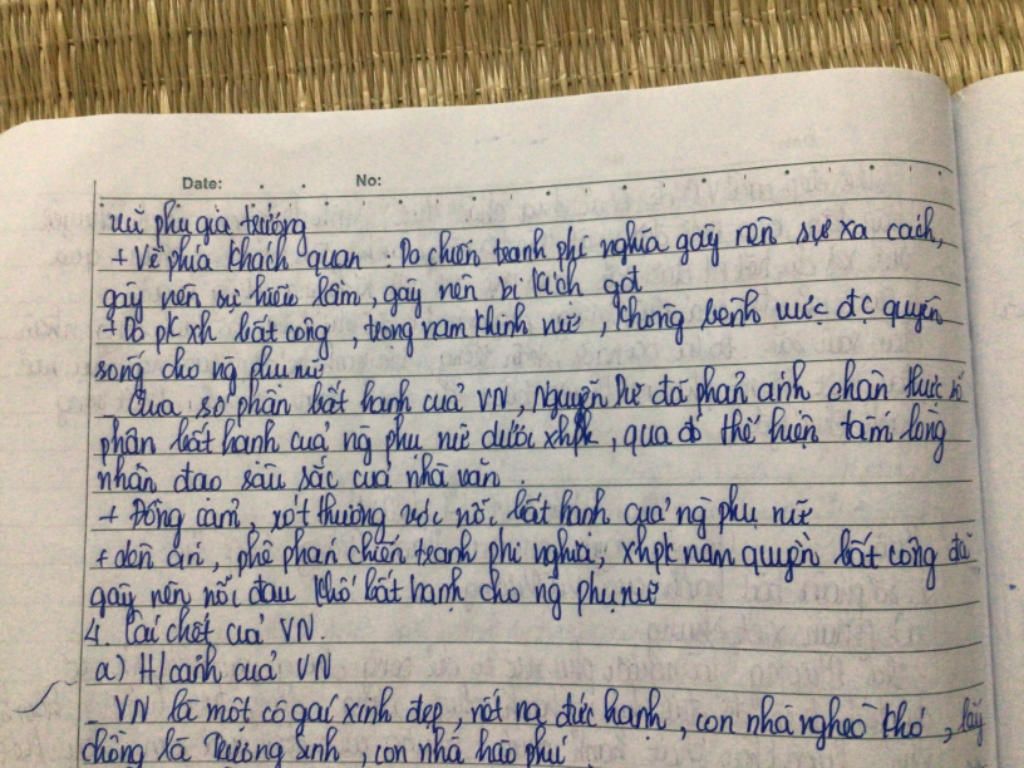 Date: . . No:
vũ phu gia trưởng
+ Về phía khách quan : Do chiến tranh phi nghĩa gây nên sự xa cách,
gây nên sự hiểu lầm, gây nên bi kịch
+ Do pk xh bất công, trọng nam khinh nữ, không bênh vực đc quyền
sống cho ng phụ nữ
_ Qua số phận bất hạnh của VN, Nguyễn Dữ đã phản ánh chân thực số
phận bất hạnh của ng phụ nữ dưới xhpk, qua đó thể hiện tấm lòng
nhân đạo sâu sắc của nhà văn.
+ Đồng cảm, xót thương với nỗi bất hạnh của ng phụ nữ
+ lên án, phê phán chiến tranh phi nghĩa, xhpk nam quyền bất công đã
gây nên nỗi đau khổ bất hạnh cho ng phụ nữ
4. Cái chết của VN.
a) H/cảnh của VN
_ VN là một cô gái xinh đẹp, nết na đức hạnh, con nhà nghèo khó, lấy
chồng là Trương Sinh, con nhà hào phú.